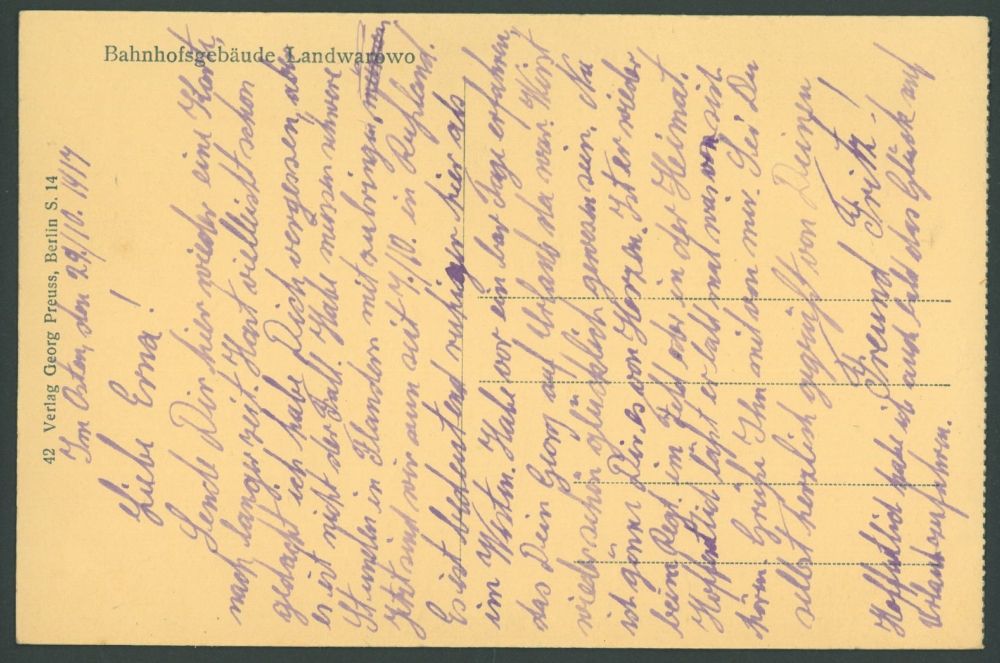 Bahnhofsgebäude Landwarowo
42 Verlag Georg Preuss, Berlin S. 14
Im Osten, den 29./10. 1917
Liebe Erna!
Sende Dir hier wieder eine Karte,
nach langer zeit. Hast vielleicht schon
gedacht ich habe Dich vergessen, aber
es ist nicht der Fall. Habe müssen schwere
Stunden in Flandern mit zubringen,
Jetzt sind wir nun seit 7./10. in Rußland.
Es ist bedeutend ruhiger hier als
im Westen. Habe vor ein bar Tage erfahren,
das Dein Georg auf Urlaub da war. Wirst
wieder schön glücklich gewesen sein. Na
ich gönne Dir es von Herzen. Ist er wieder
beim Regt. im Feld oder in der Heimat.
Hoffentlich läßt er bald mal was von sich
hören. Grüße Ihn mal von mir. Sei Du
selbst herzlich gegrüßt von Deinen
Freund Fritz!
Hoffentlich habe ich auch bald das Glück auf
Urlaub zu fahren.